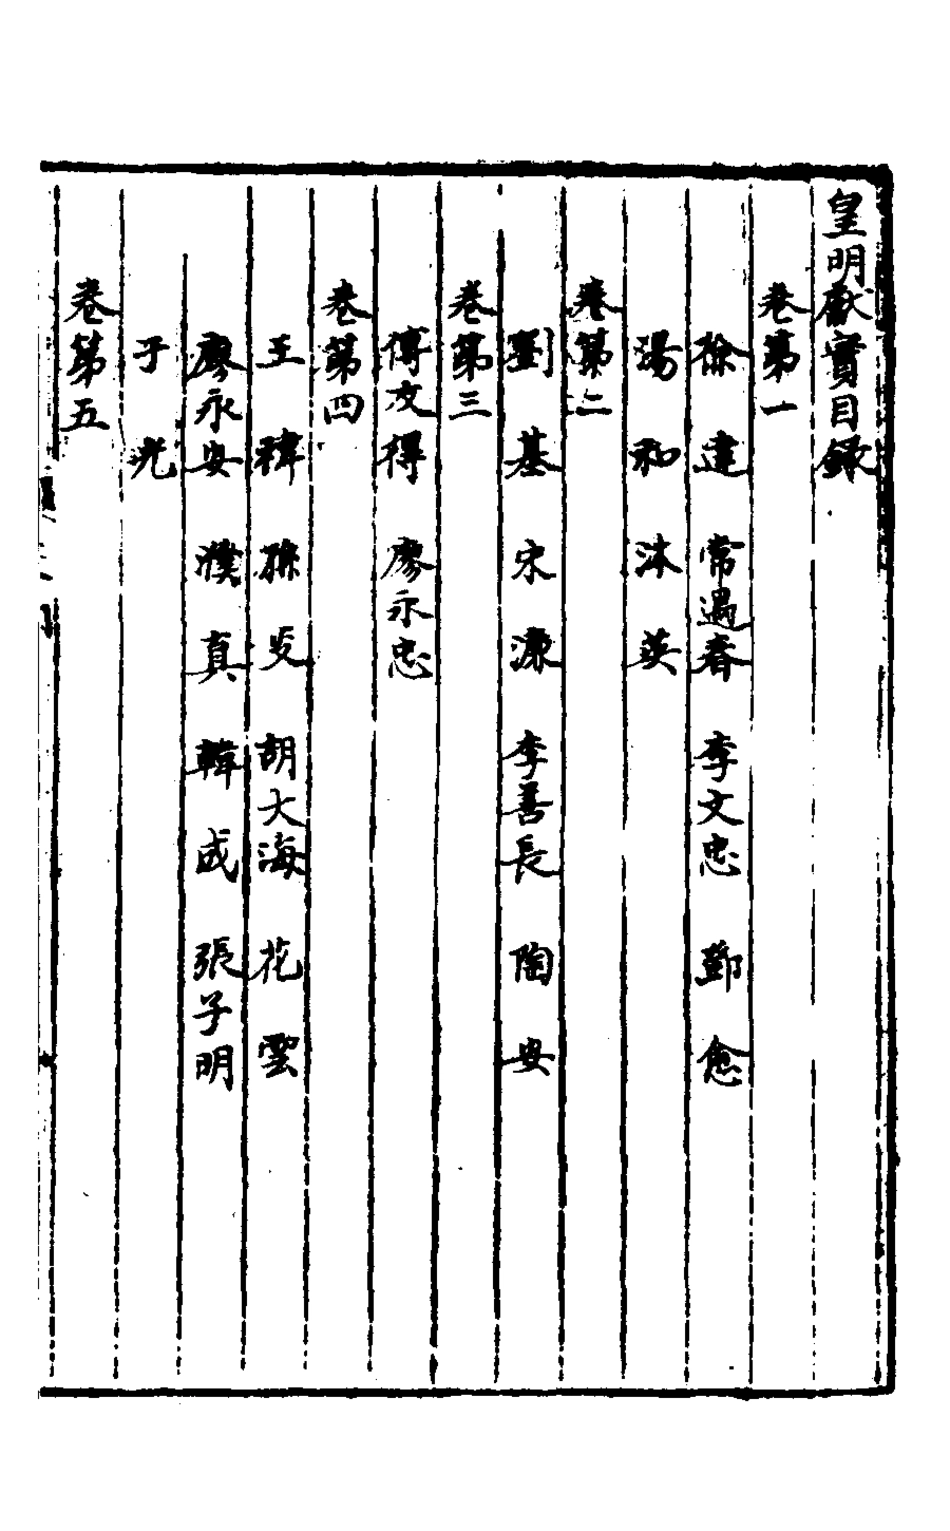 皇明獻實目錄
卷第一
徐達 常遇春 李文忠 鄧愈
湯和 沐英
卷第二
劉基 宋濂 李善長 陶安
卷第三
傅友得 廖永忠
卷第四
王禕 孫炎 胡大海 花雲
廖永安 濮真 韓成 張子明
于光
卷第五